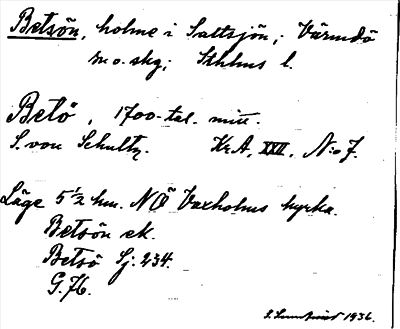 Betsön, holme i Saltsjön; Värmdö
m.o. skg; Sthlms l.
Betö, 1700-tal. mitt.
S. von Schultz. Kr.A. XXII. N:o 7.
Läge 5 1/2 km. NÖ Vaxholms kyrka.
Betsön ek.
Betsö Sj: 234.
G.76.
1936.